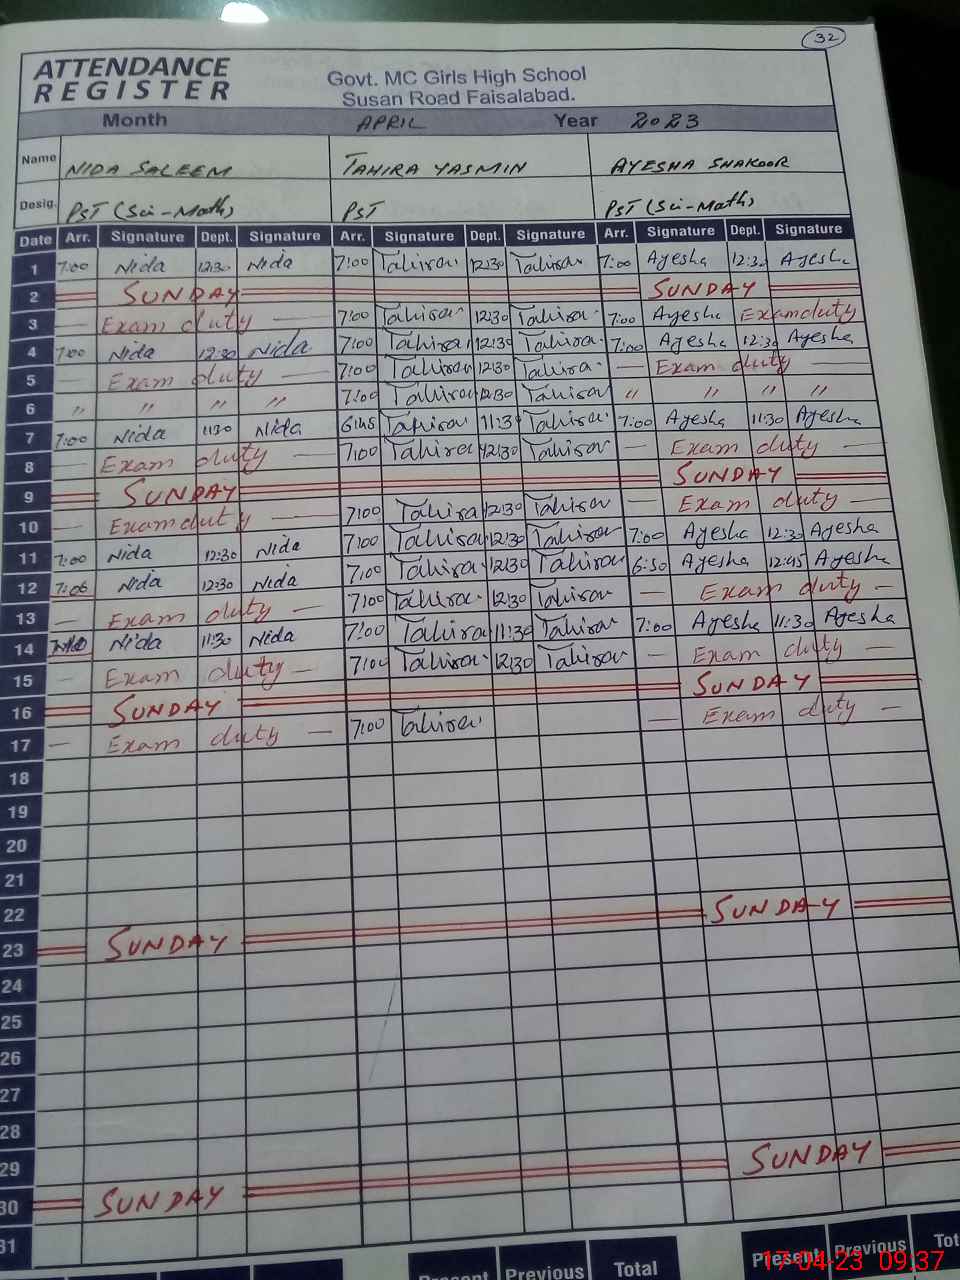 32
ATTENDANCE REGISTER
Govt. MC Girls High School
Susan Road Faisalabad.
Month APRIL Year 2023
Name NIDA SALEEM TAHIRA YASMIN AYESHA SHAKOOR
Desig. PST (Sci-Math) PST PST (Sci-Math)
Date Arr. Signature Dept. Signature Arr. Signature Dept. Signature Arr. Signature Dept. Signature
1 7:00 Nida 12:30 Nida 7:00 Tahira 12:30 Tahira 7:00 Ayesha 12:30 Ayesha
2 SUNDAY SUNDAY
3 — Exam duty — 7:00 Tahira 12:30 Tahira 7:00 Ayesha Exam duty
4 7:00 Nida 12:30 Nida 7:00 Tahira 12:30 Tahira 7:00 Ayesha 12:30 Ayesha
5 — Exam duty — 7:00 Tahira 12:30 Tahira — Exam duty —
6 " " " " 7:00 Tahira 12:30 Tahira " " " "
7 7:00 Nida 11:30 Nida 6:45 Tahira 11:30 Tahira 7:00 Ayesha 11:30 Ayesha
8 — Exam duty — 7:00 Tahira 12:30 Tahira — Exam duty —
9 SUNDAY SUNDAY
10 — Exam duty — 7:00 Tahira 12:30 Tahira — Exam duty —
11 7:00 Nida 12:30 Nida 7:00 Tahira 12:30 Tahira 7:00 Ayesha 12:30 Ayesha
12 7:06 Nida 12:30 Nida 7:00 Tahira 12:30 Tahira 6:50 Ayesha 12:45 Ayesha
13 — Exam duty — 7:00 Tahira 12:30 Tahira — Exam duty —
14 Nida 11:30 Nida 7:00 Tahira 11:30 Tahira 7:00 Ayesha 11:30 Ayesha
15 — Exam duty — 7:00 Tahira 12:30 Tahira — Exam duty —
16 SUNDAY SUNDAY
17 — Exam duty — 7:00 Tahira — Exam duty —
18
19
20
21
22
23 SUNDAY SUNDAY
24
25
26
27
28
29
30 SUNDAY SUNDAY
31
Present Previous Total Present Previous
17-04-23 09:37